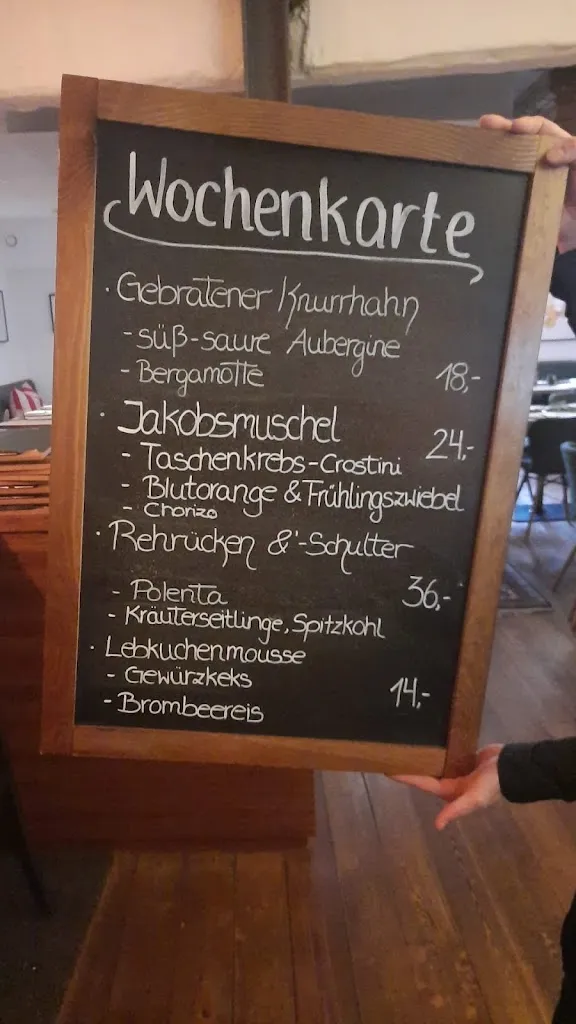 Wochenkarte
· Gebratener Knurrhahn
- süß-saure Aubergine
- Bergamotte 18,-
· Jakobsmuschel 24,-
- Taschenkrebs-Crostini
- Blutorange & Frühlingszwiebel
- Chorizo
· Rehrücken & '-Schulter
36,-
- Polenta
- Kräuterseitlinge, Spitzkohl
· Lebkuchenmousse
- Gewürzkeks 14,-
- Brombeereis